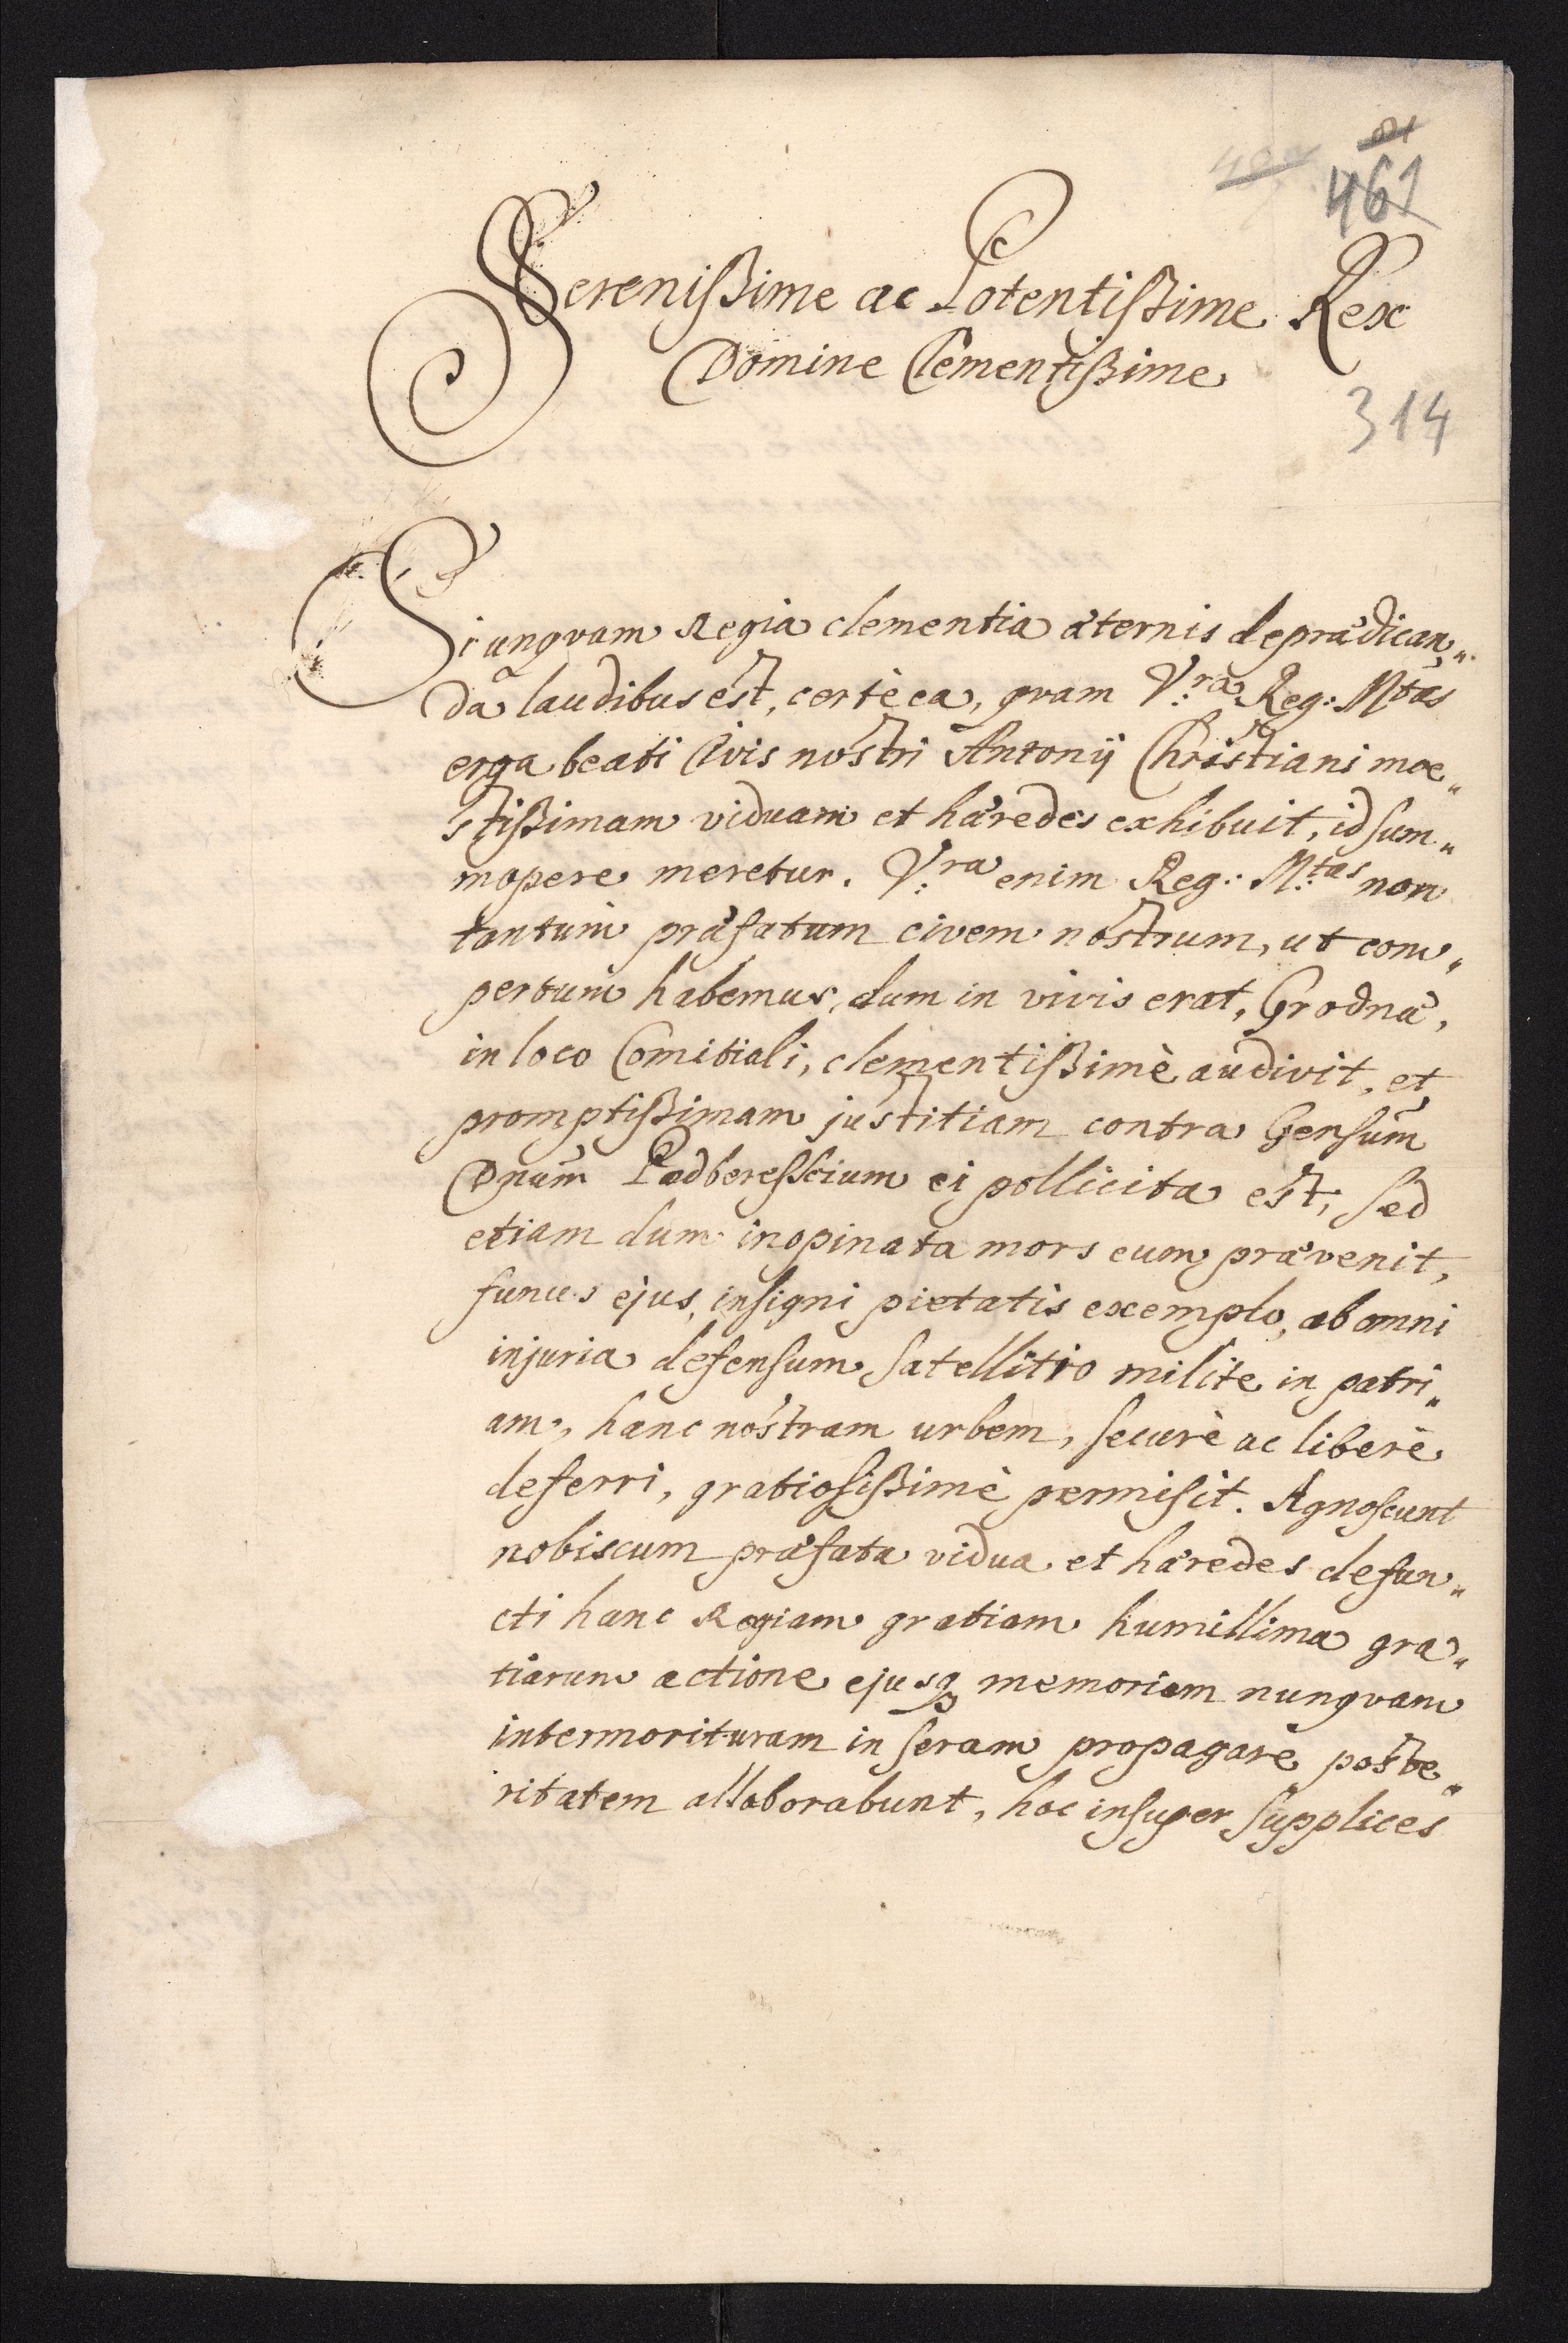 461
Serenißime ac Potentißime Rex
Domine Clementißime
314
Si unqvam Regia clementia æternis deprædican„
da laudibus est, certè ea, qvam V:ra Reg: Mtas
erga beati Civis nostri Antonij Christiani moe„
stißimam viduam et hæredes exhibuit, id sum„
mopere meretur. V:ra enim Reg: M:tas non
tantum præfatum civem nostrum, ut com„
pertum habemus, dum in vivis erat, Grodnæ,
in loco Comitiali, clementißimè audivit, et
promptißimam justitiam contra Gensum
Dnum Podberesscium ei pollicita est; sed
etiam dum inopinata mors eum prævenit,
funus ejus, insigni pietatis exemplo, ab omni
injuria defensum satellitio milite in patri„
am, hanc nostram urbem, securè ac liberè
deferri, gratiosißimè permisit. Agnoscunt
nobiscum præfata vidua et hæredes defun„
cti hanc Regiam gratiam humillima gra„
tiarum actione ejusq memoriam nunqvam
intermorituram in seram propagare poste„
ritatem allaborabunt, hoc insuper supplices